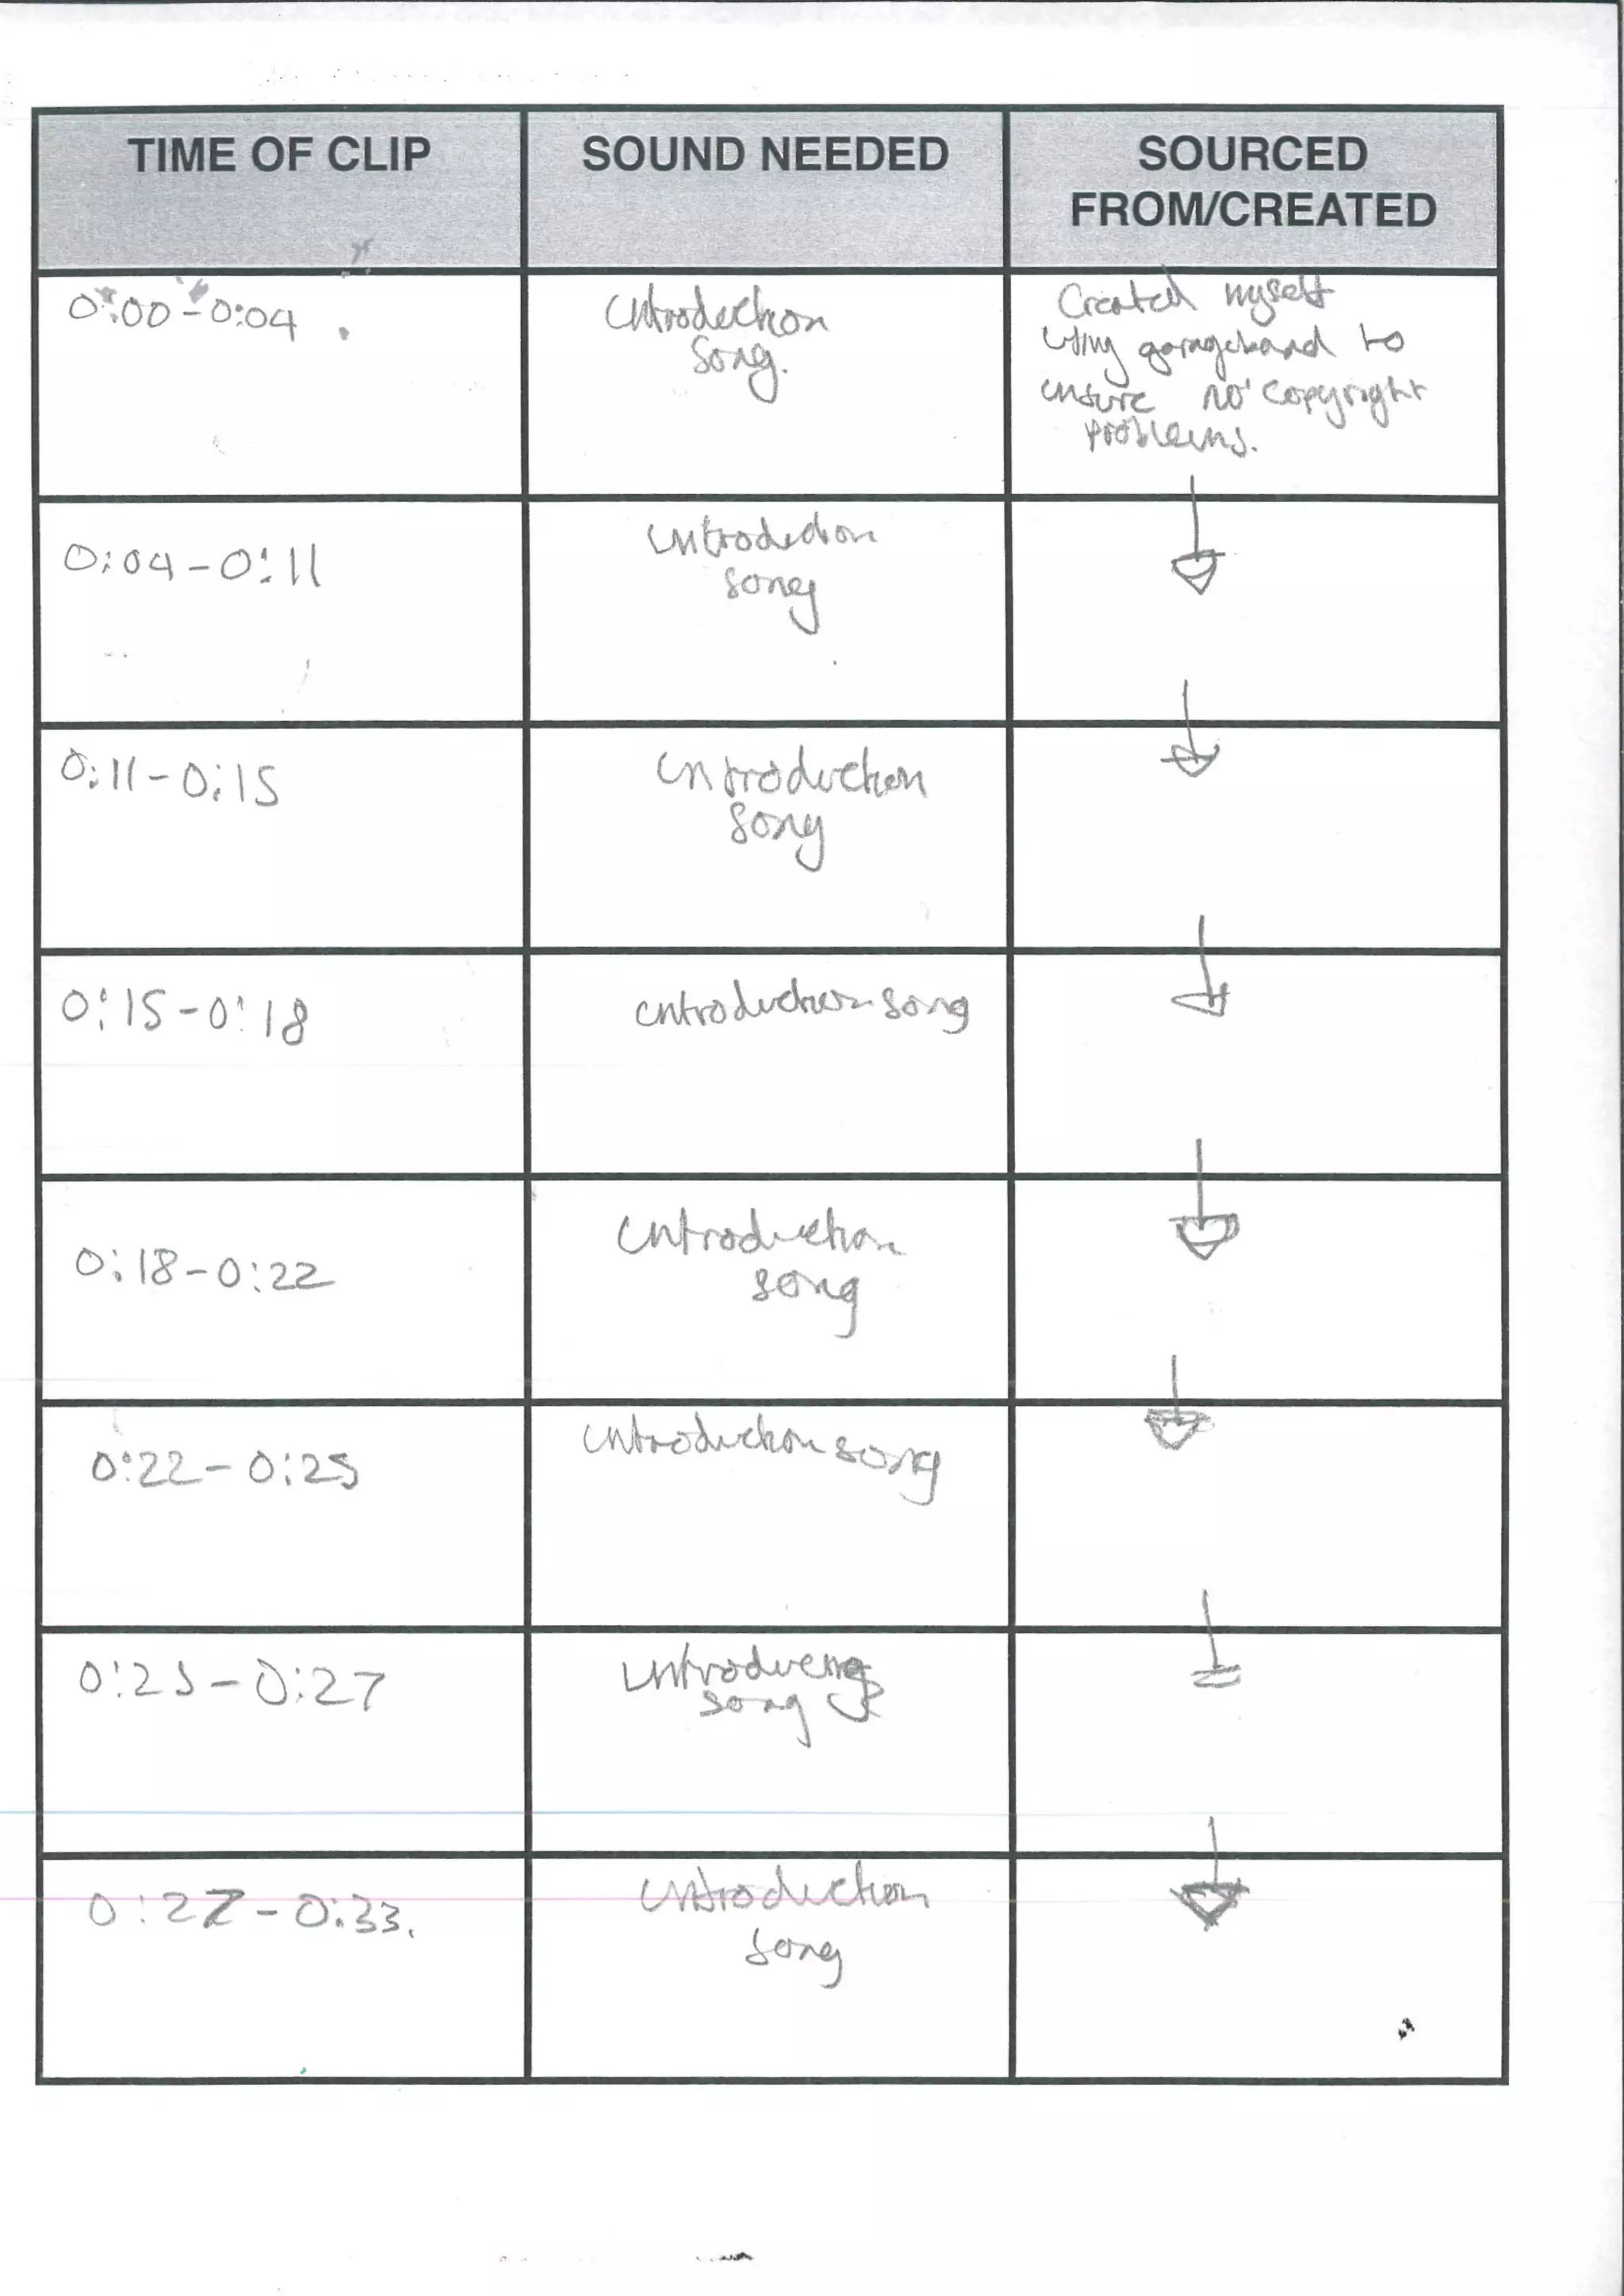 TIME OF CLIP
SOUND NEEDED
SOURCED
FROM/CREATED
0:00-0:04
introduction
song.
Created myself
using garageband to
ensure no copyright
problems.
0:04-0:11
introduction
song
0:11-0:15
introduction
song
0:15-0:18
introduction song
0:18-0:22
introduction
song
0:22-0:25
introduction song
0:25-0:27
song
0:27-0:33.
introduction
song